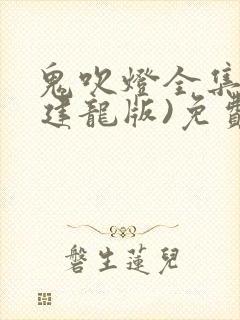 鬼吹燈全集
建龍版)免費
磐生蓮兒